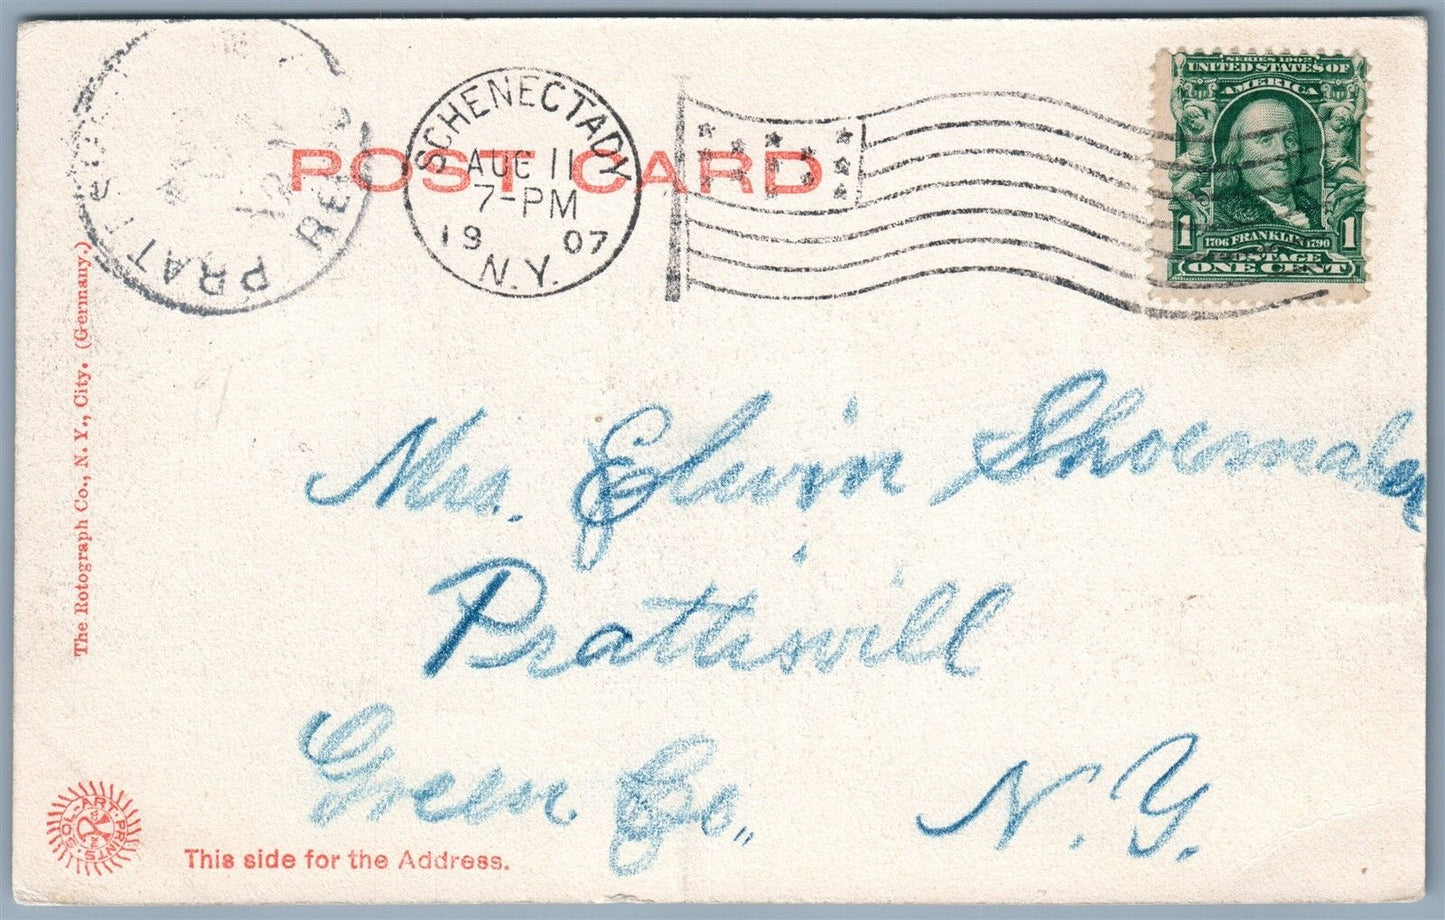 POST CARD
SCHENECTADY
AUG 11
7-PM
19 07
N.Y.
PRATT
RE
SERIES 1902
UNITED STATES OF
AMERICA
1 1
1706 FRANKLIN 1790
POSTAGE
ONE CENT
Mrs. Elwin Shoemaker
Prattsvill
Green Co., N.Y.
The Rotograph Co., N. Y., City. (Germany.)
SOL-ART PRINTS
This side for the Address.